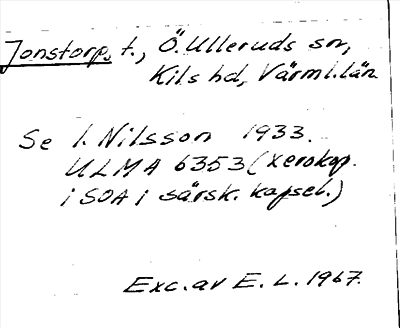 Jonstorp, t., Ö. Ulleruds sn,
Kils hd, Värml. län
Se I. Nilsson 1933.
ULMA 6353 (xerokop.
i SOA i särsk. kapsel.)
Exc. av E. L. 1967.